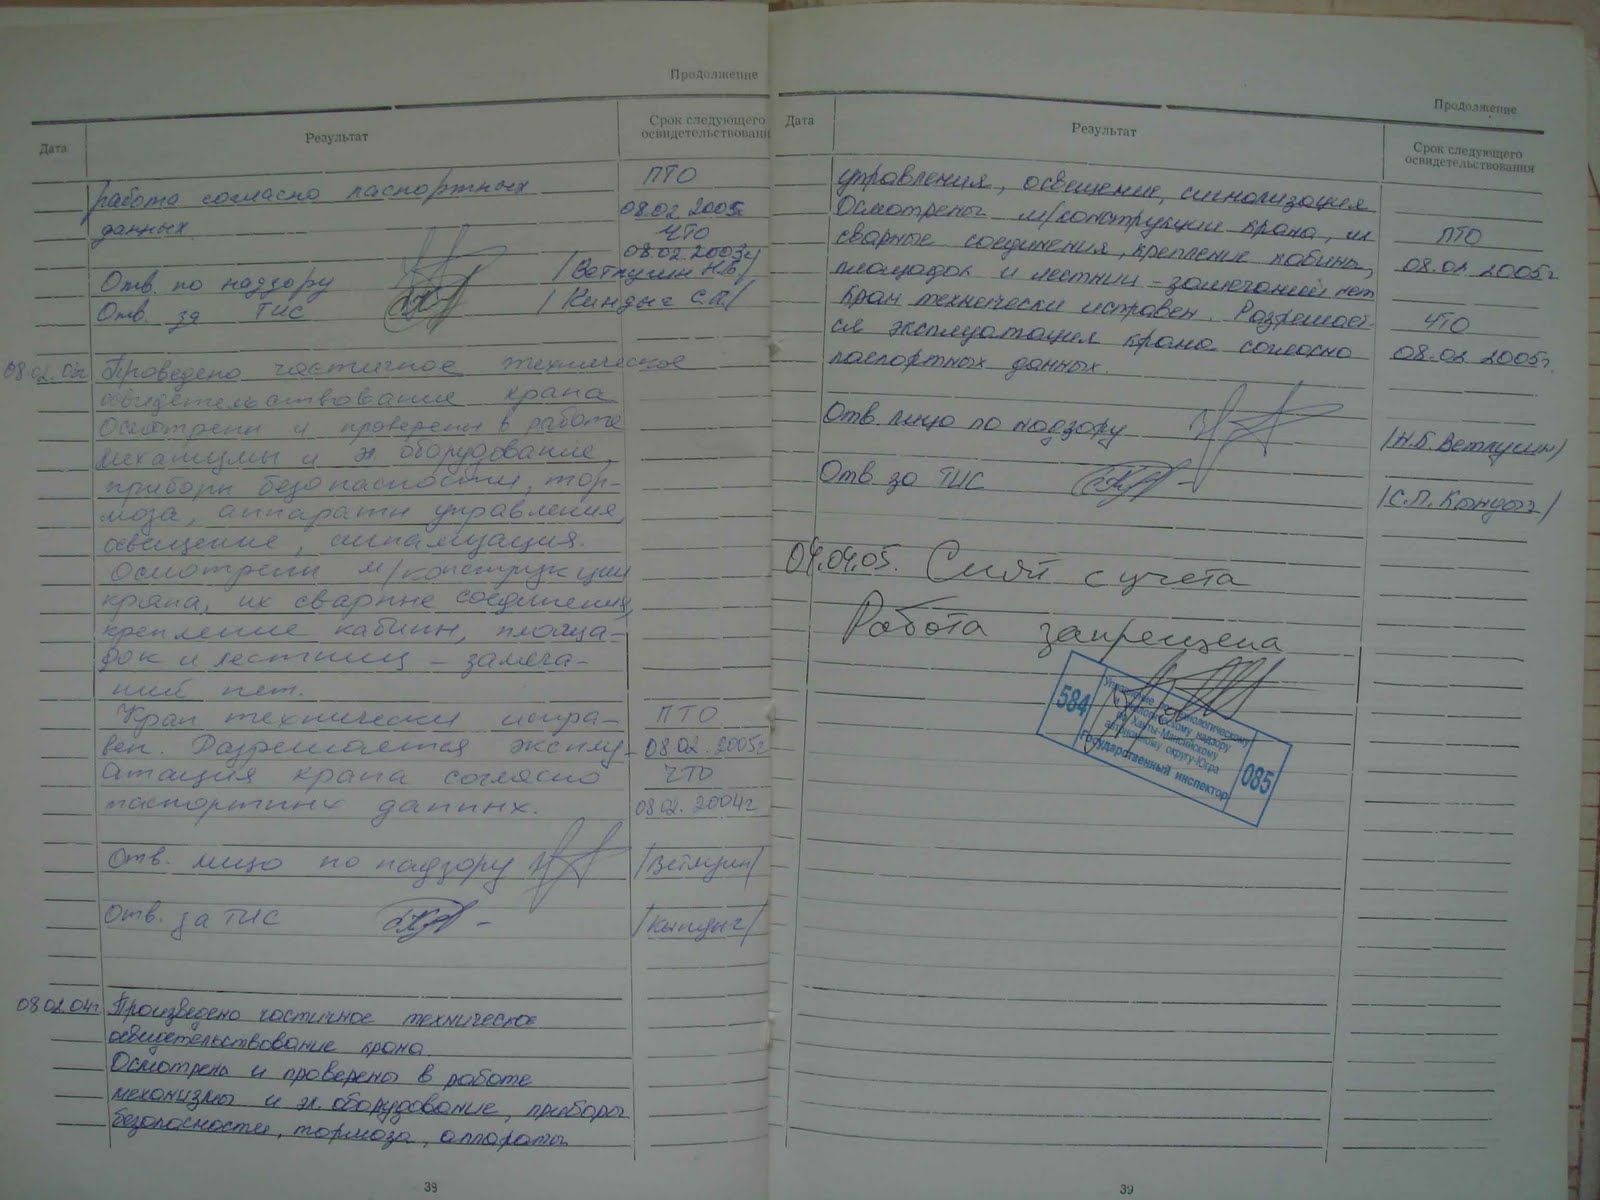 Продолжение
Дата
Результат
Срок следующего
освидетельствовани
работа согласно паспортных
данных.
ПТО
08.02 2005г
ЧТО
08.02 2003г
Отв. по надзору /Ветлугин Н.Б/
Отв. за ТИС /Кындыг С.П./
08.02.03г Проведено частичное техническое
освидетельствование крана
Осмотрены и проверены в работе
механизмы и эл. оборудование,
приборы безопасности, тор-
моза, аппараты управления,
освещение, сигнализация.
Осмотрены м/конструкции
крана, их сварные соединения,
крепление кабины, площа-
док и лестниц – замеча-
ний нет.
Кран технически испра-
вен. Разрешается эксплу-
атация крана согласно
паспортных данных.
ПТО
08.02.2005г
ЧТО
08.02.2004г
Отв. лицо по надзору /Ветлугин/
Отв. за ТИС /Кындыг/
08.02.04г Произведено частичное техническое
освидетельствование крана.
Осмотрены и проверены в работе
механизмы и эл. оборудование, приборы
безопасности, тормоза, аппараты
38
Продолжение
Дата
Результат
Срок следующего
освидетельствования
управления, освещение, сигнализация
Осмотрены м/конструкции крана, их
сварные соединения, крепление кабины,
площадок и лестниц – замечаний нет
Кран технически исправен. Разрешает-
ся эксплуатация крана согласно
паспортных данных.
ПТО
08.02.2005г
ЧТО
08.02.2005г.
Отв. лицо по надзору /Н.Б. Ветлугин/
Отв за ТИС /С.П. Кындыг/
04.04.05. Снят с учета
Работа запрещена
584
Управление по технологическому
и экологическому надзору
по Ханты-Мансийскому
автономному округу-Югра
Государственный инспектор
085
39